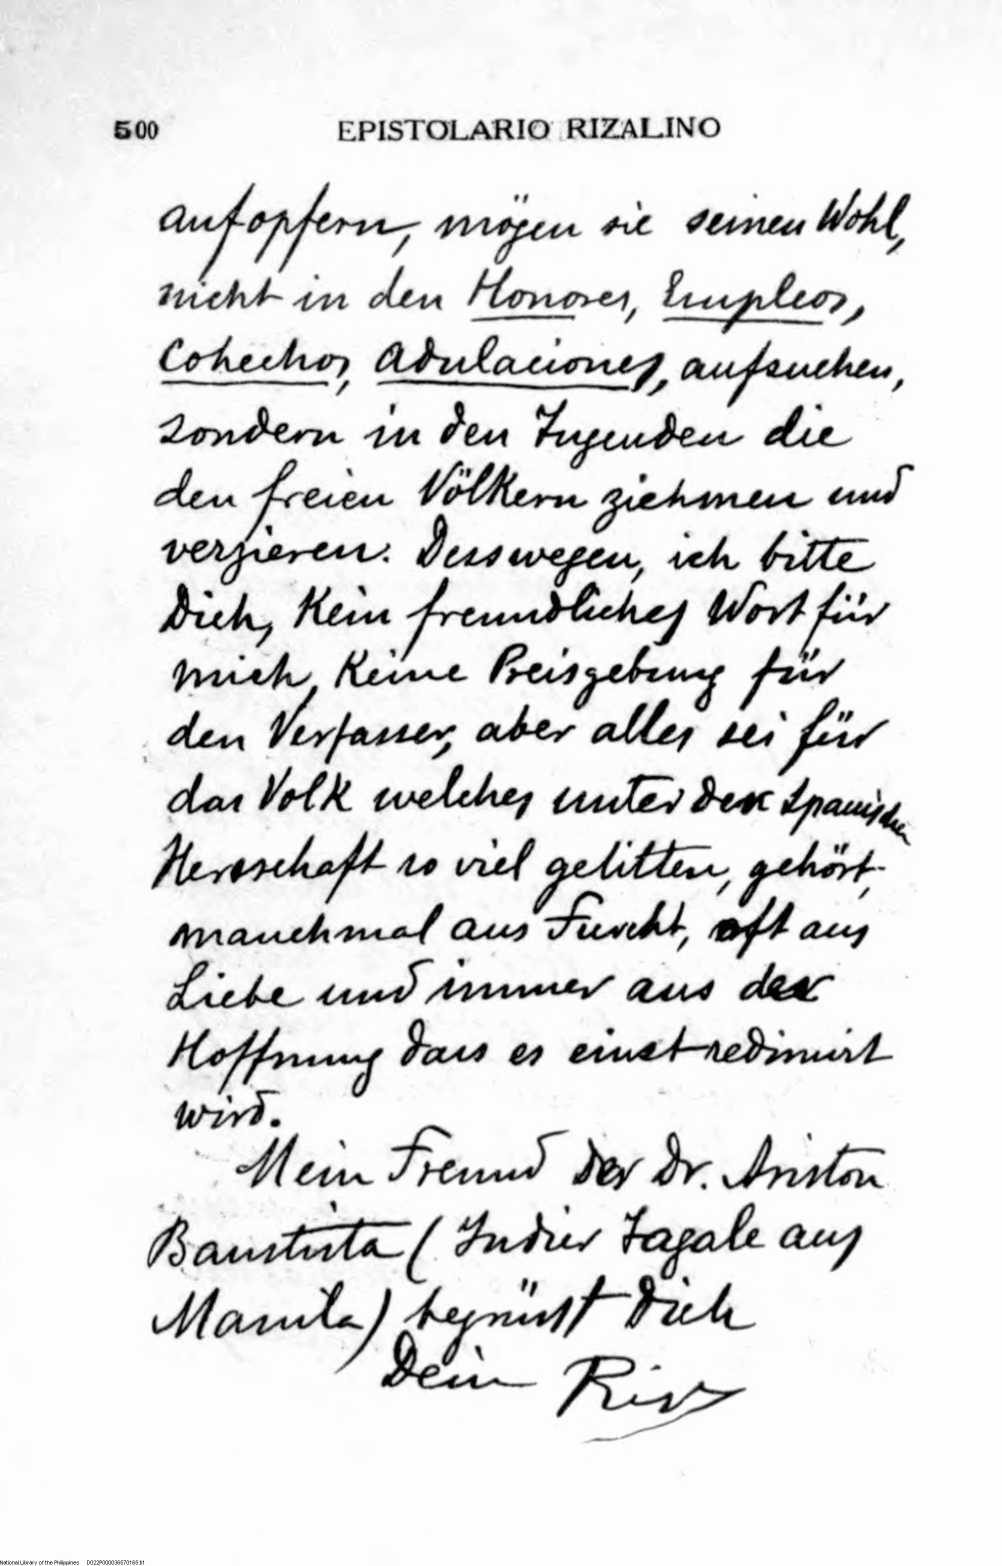 500 EPISTOLARIO RIZALINO
aufopfern, mögen sie seinen Wohl,
nicht in den Honores, Empleos,
Cohechos, Adulaciones, aufsuchen,
sondern in den Tugenden die
den freien Völkern ziehmen und
verzieren. Desswegen, ich bitte
Dich, Kein freundliches Wort für
mich, Keine Preisgebung für
den Verfasser, aber alles sei für
das Volk welches unter der Spanischen
Herrschaft so viel gelitten, gehört,
manchmal aus Furcht, oft aus
Liebe und immer aus der
Hoffnung dass es einst redimirt
wird.
Mein Freund der Dr. Ariston
Baustista (Indier Tagale aus
Manila) begrüsst Dich
Dein Riz
National Library of the Philippines